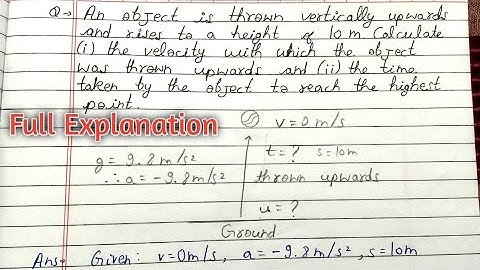 Q→ An object is thrown vertically upwards
and rises to a height of 10 m Calculate
(i) the velocity with which the object
was thrown upwards and (ii) the time
taken by the object to reach the highest
point.
Full Explanation
v=0m/s
g= 9.8m/s²
t=? s=10m
∴ a=-9.8m/s²
thrown upwards
u=?
Ground
Ans→ Given: v=0m/s, a=-9.8m/s², s=10m